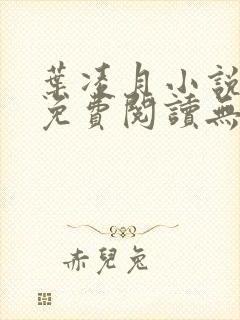 葉凌月小說
免費閱讀無
赤兒兔